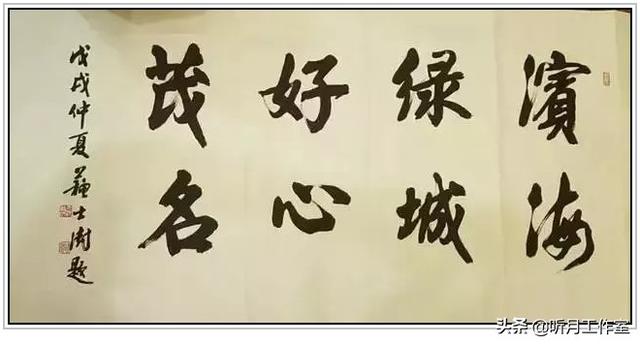 濱海
绿城
好心
茂名
戊戌仲夏蘇士澍题
头条@听月工作室